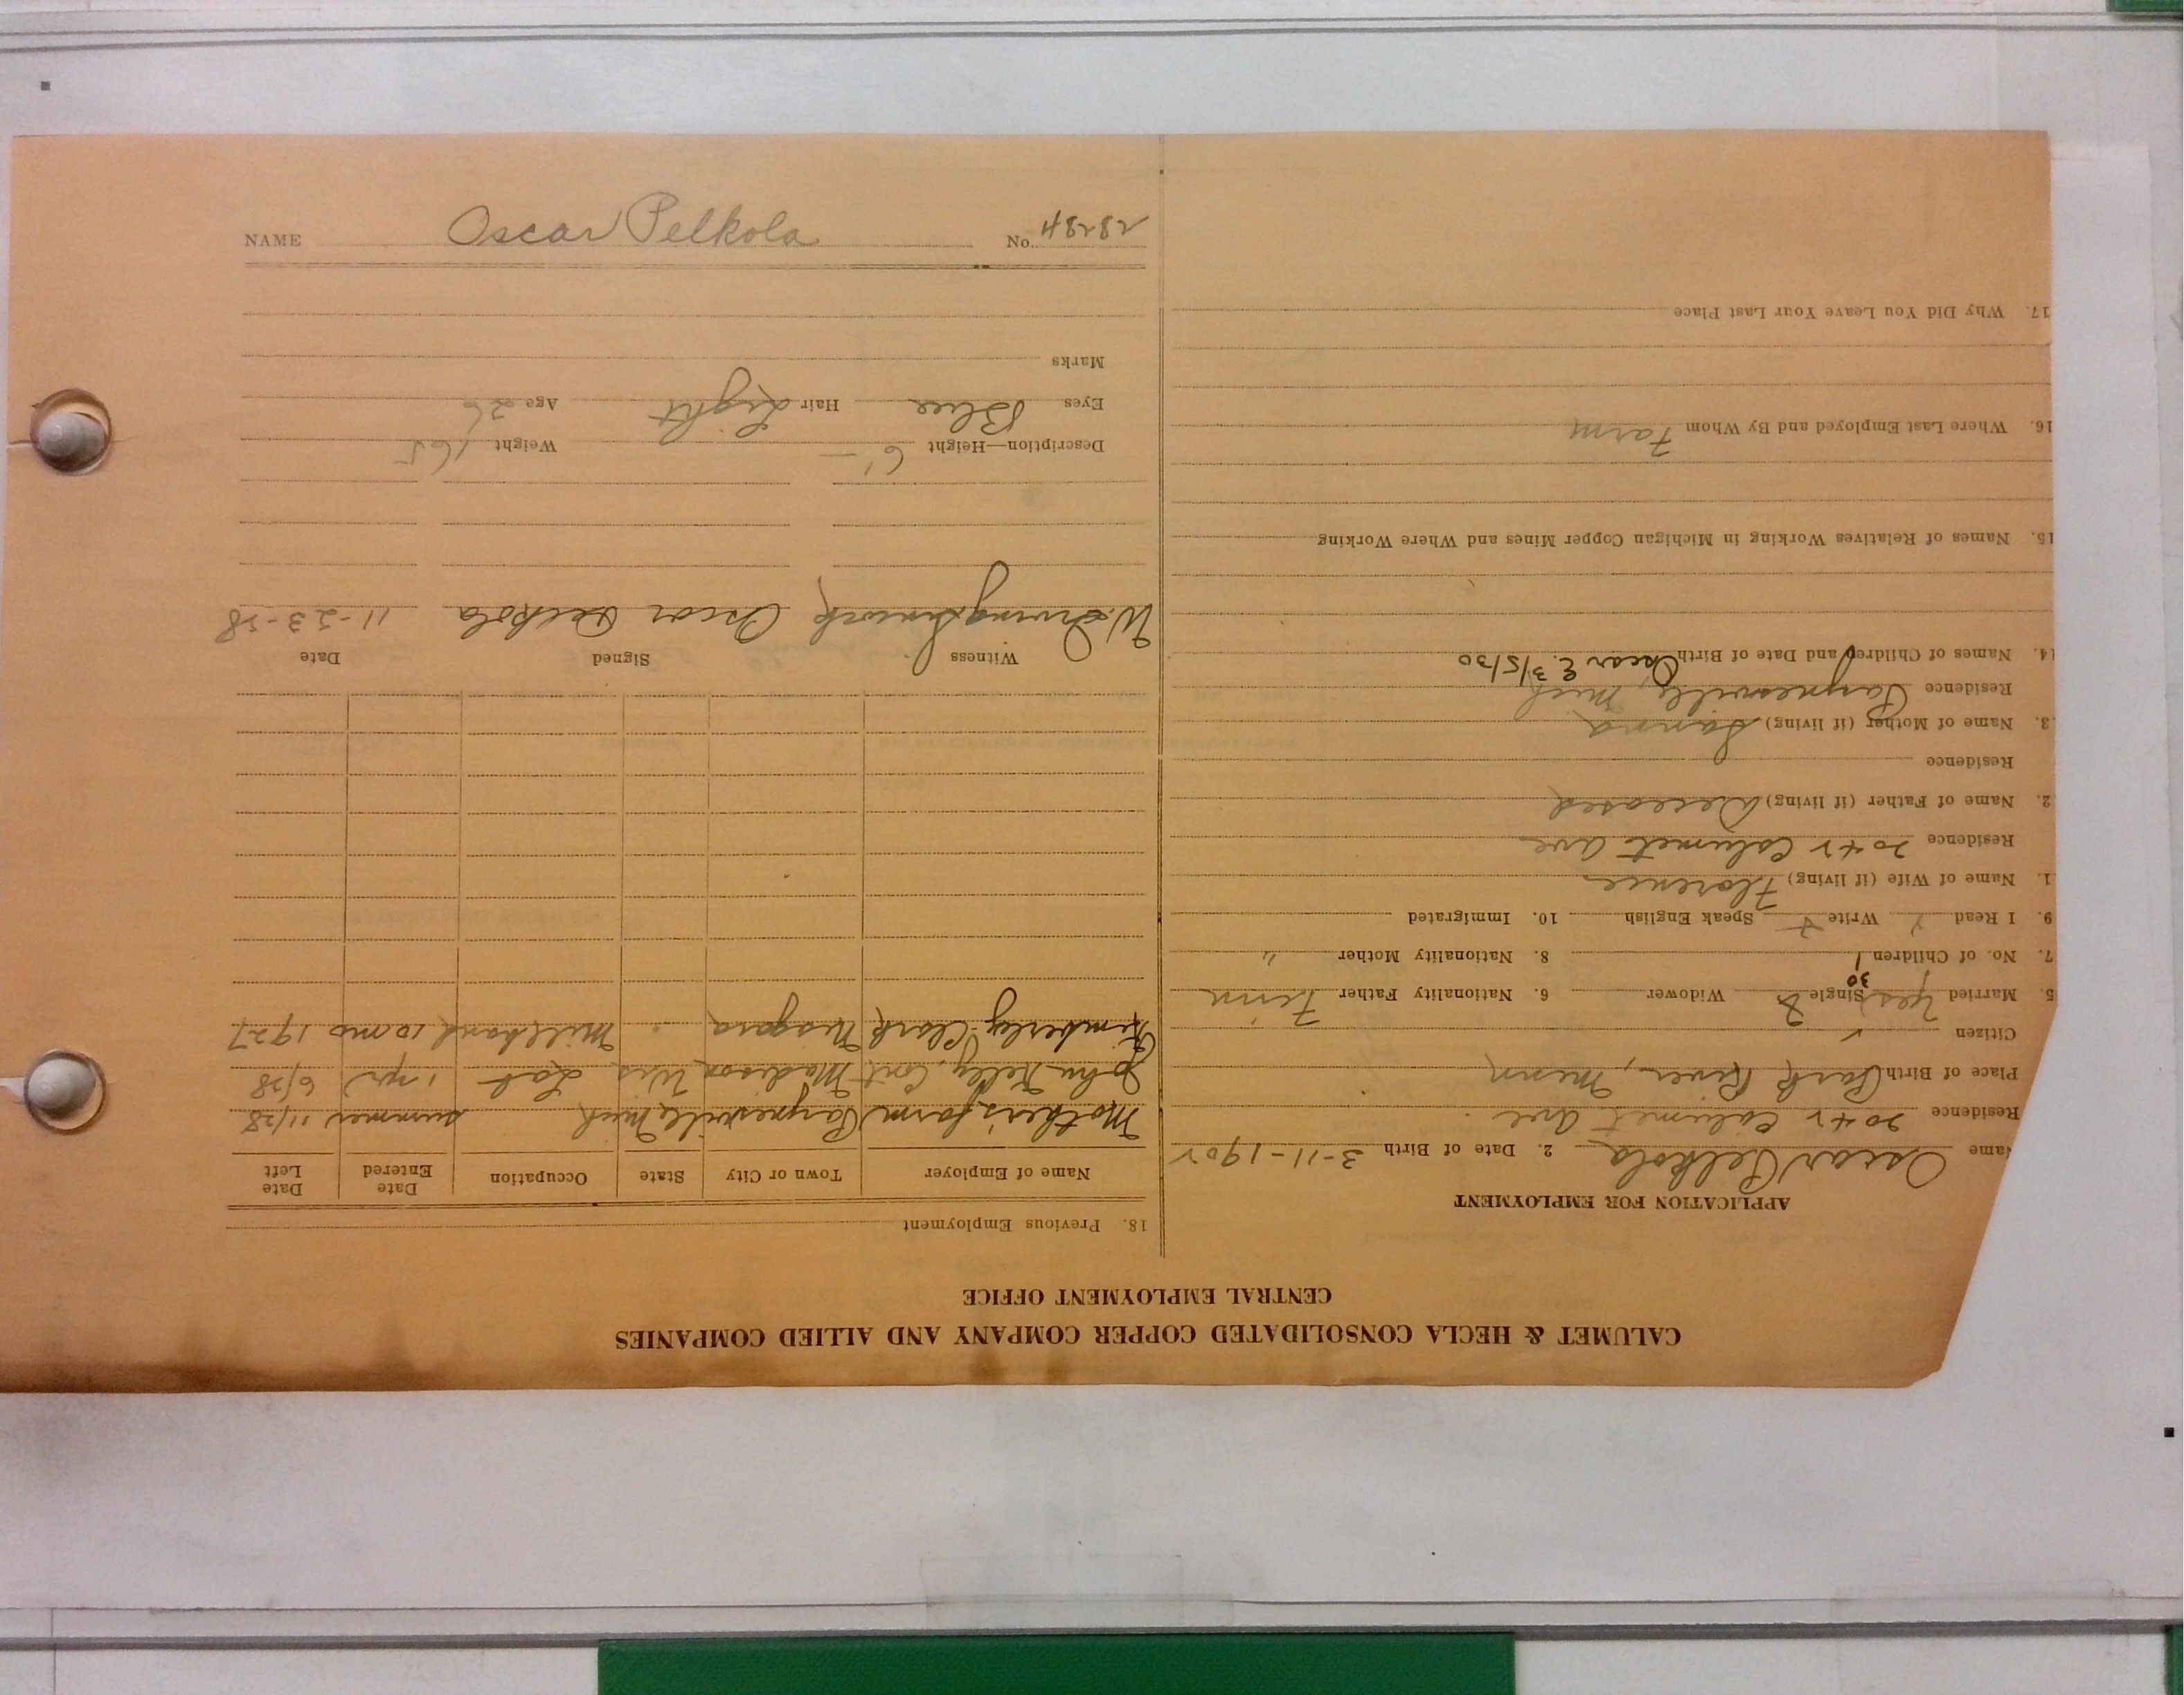 CALUMET & HECLA CONSOLIDATED COPPER COMPANY AND ALLIED COMPANIES
CENTRAL EMPLOYMENT OFFICE
APPLICATION FOR EMPLOYMENT
Name Oscar Pelkola 2. Date of Birth 3-11-1902
Residence 2042 Calumet Ave
Place of Birth Park River, Minn
Citizen
5. Married Yes 30 Single Widower 6. Nationality Father Finn
7. No. of Children 1 8. Nationality Mother "
9. I Read Write Speak English 10. Immigrated
1. Name of Wife (if living) Florence
Residence 2042 Calumet Ave
2. Name of Father (if living) Deceased
Residence
3. Name of Mother (if living) Sanna
Residence Paynesville, Mich
14. Names of Children and Date of Birth Oscar E. 3/5/30
15. Names of Relatives Working in Michigan Copper Mines and Where Working
16. Where Last Employed and By Whom Farm
17. Why Did You Leave Your Last Place
18. Previous Employment
Name of Employer Town or City State Occupation Date Entered Date Left
Mother's farm Paynesville Mich summer 11/28
John Kelly, Cont Madison Wis Lab 1 yr 6/28
Kimberly-Clark Niagara " Millhand 10 mo 1927
Witness Signed Date
W. Irving Oscar Pelkola 11-23-28
Description—Height 6'— Weight 165
Eyes Blue Hair Light Age 26
Marks
NAME Oscar Pelkola No. 28284